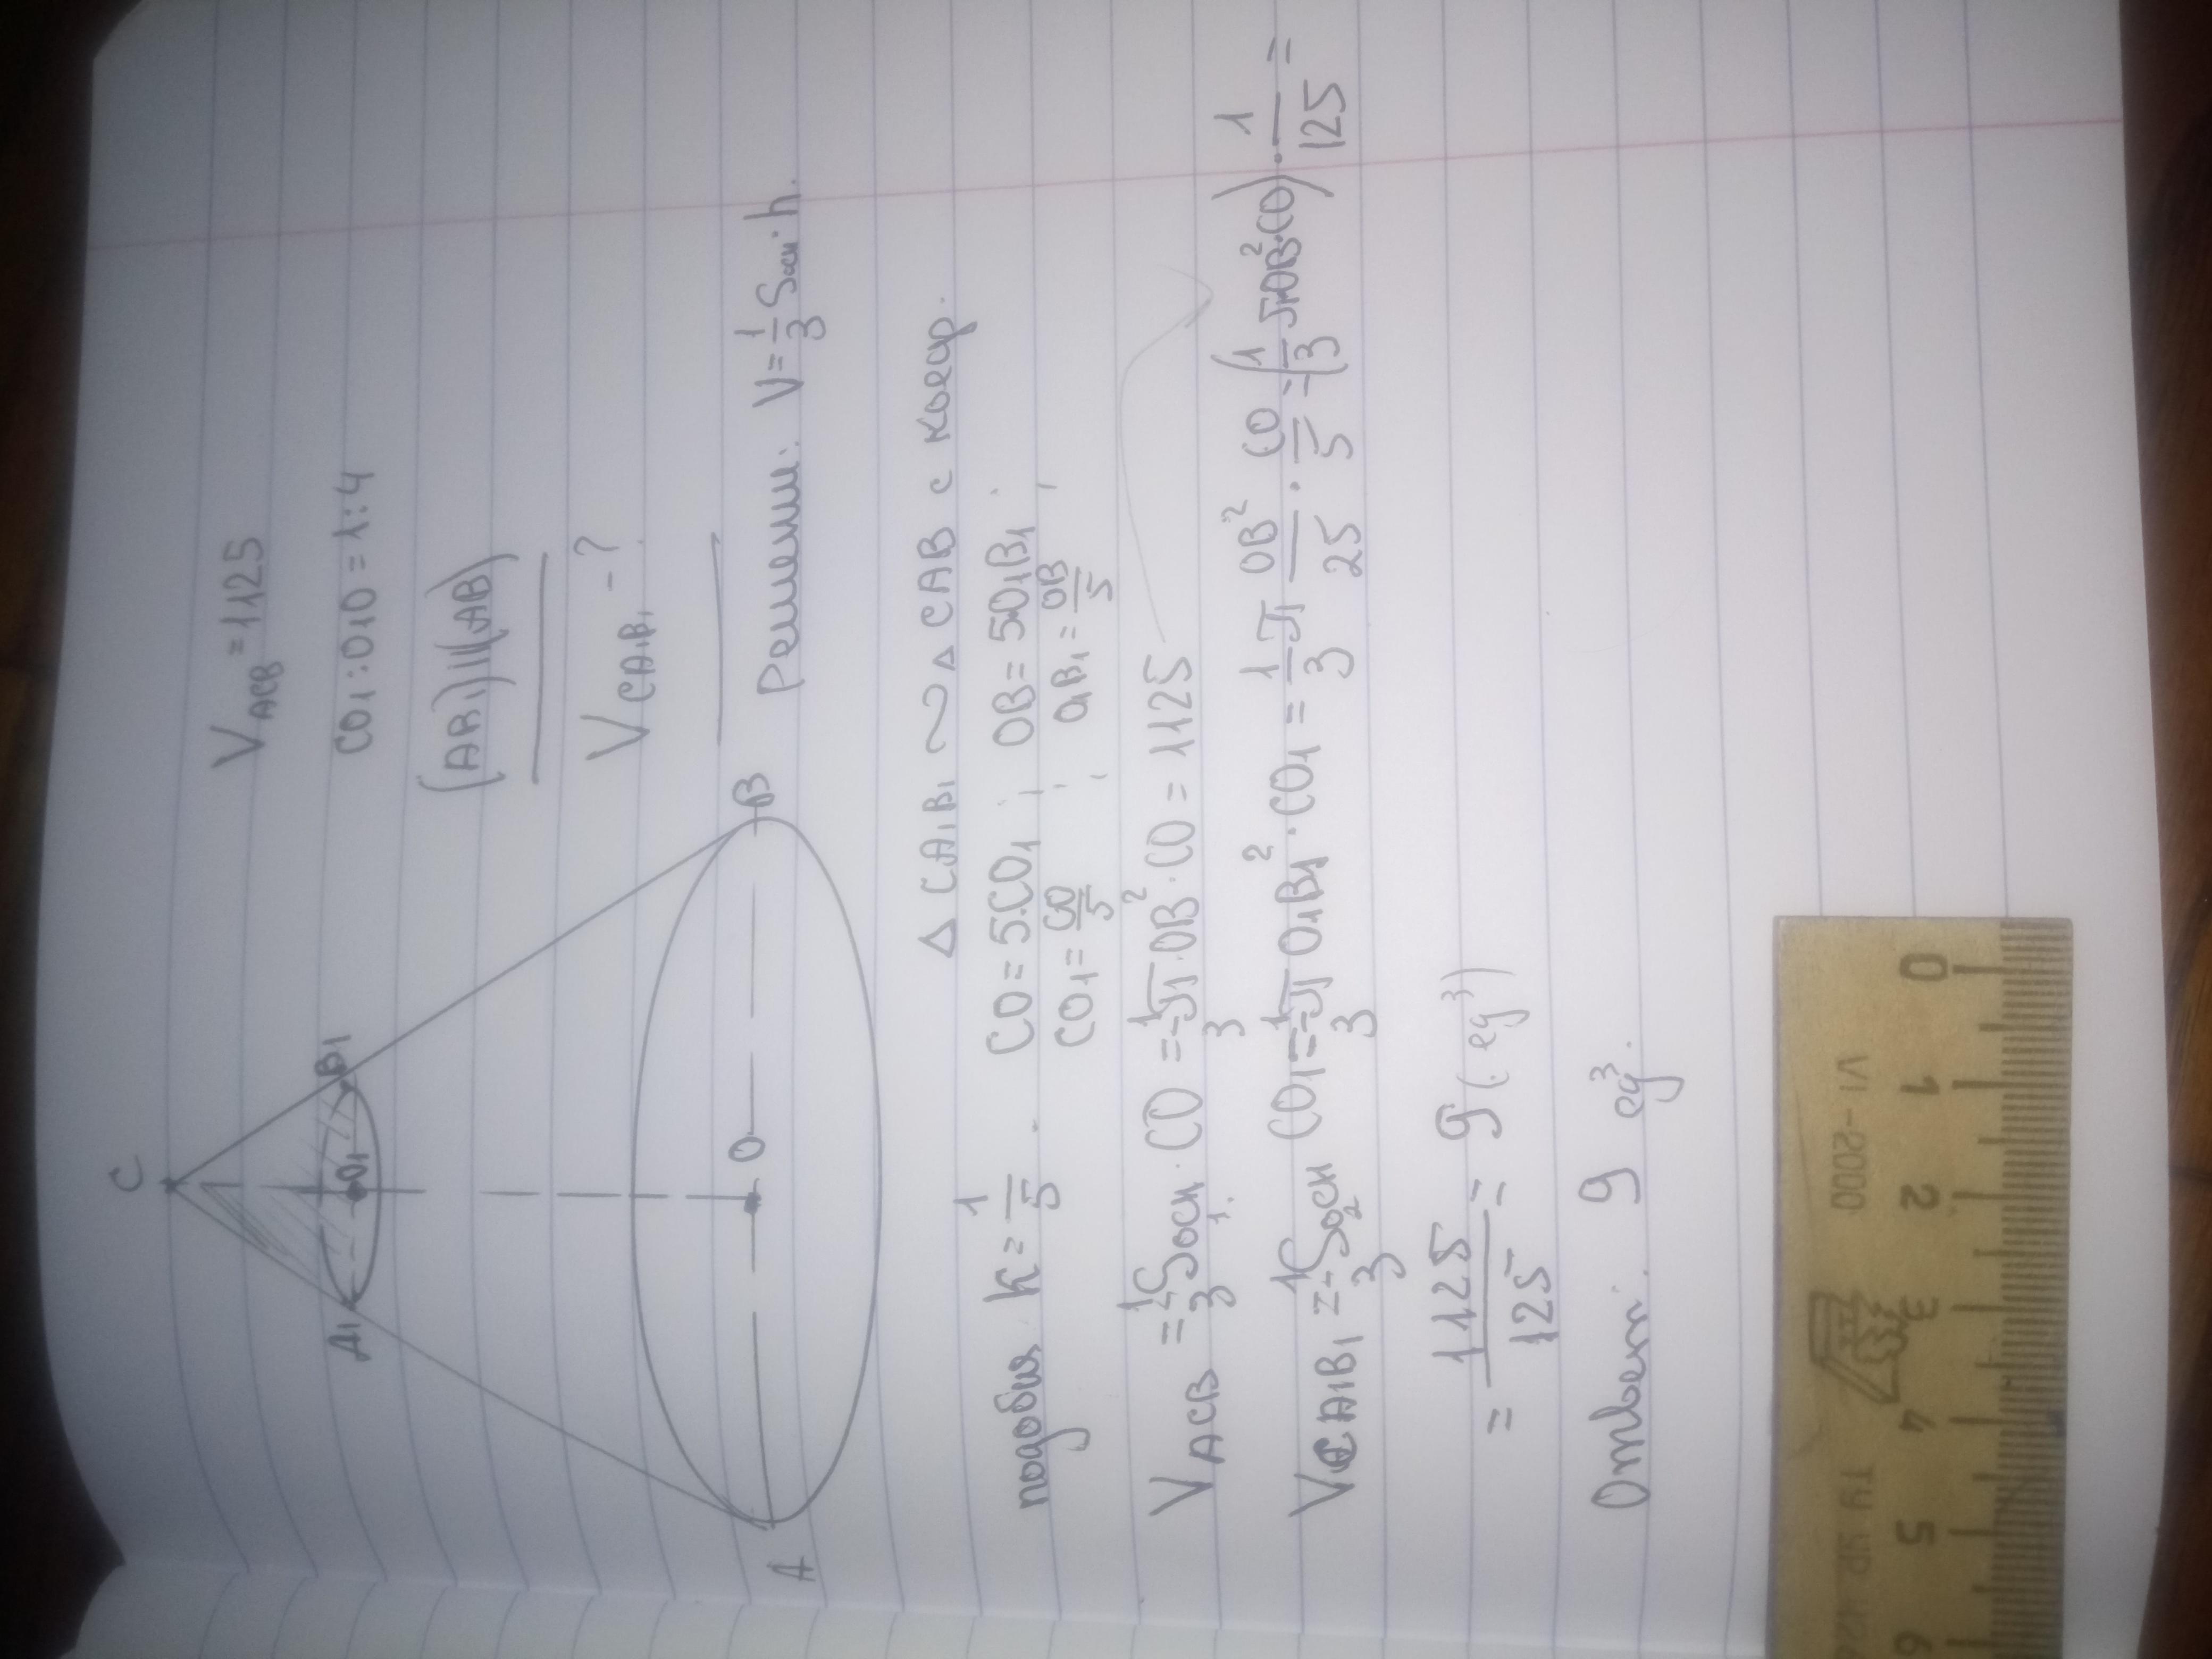 C
A₁
O₁
B₁
A
O
B
V_ACB = 1125
CO₁ : O₁O = 1 : 4
(AB₁) || (AB)
V_CA₁B₁ - ?
Решени: V = 1/3 Sосн · h.
△ CA₁B₁ ~ △ CAB с коэф.
подобия K = 1/5 . CO = 5CO₁ ; OB = 5O₁B₁ ;
CO₁ = CO/5 ; O₁B₁ = OB/5
V_ACB = 1/3 Sосн₁ · CO = 1/3 π · OB² · CO = 1125
V_CA₁B₁ = 1/3 Sосн₂ CO₁ = 1/3 π O₁B₁² · CO₁ = 1/3 π OB²/25 · CO/5 = (1/3 π · OB² · CO) · 1/125 =
= 1125/125 = 9 (ед³)
Ответ: 9 ед³.
0 1 2 3 4 5 6
VI-2000
ТУ УР